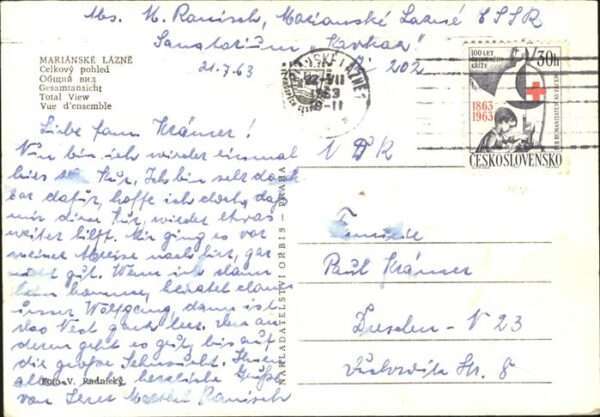 Abs. M. Ranisch, Marianské Lázně ČSSR
Sanatorium Kavkaz
Pi 202
21.7.63
MARIÁNSKÉ LÁZNĚ
Celkový pohled
Общий вид
Gesamtansicht
Total View
Vue d'ensemble
22.VII
1963
100 LET
30h
1863
1963
ČESKOSLOVENSKO
Liebe Fam Krämer!
Nun bin ich wieder einmal
hier zur Kur. Ich bin sehr dank
bar dafür, hoffe ich doch, daß
mir diese Kur, wieder etwas
weiter hilft. Mir ging es vor
meiner Abreise nach hier, gar
nicht gut. Wenn ich dann
heim komme, heiratet dann
unser Wolfgang, dann ist
das Nest ganz leer. Den an
deren geht es gut, bis auf
die große Sehnsucht. Ihnen
allen herzliche Grüße
von Ihrer Ranisch
Foto V. Radnický
NAKLADATELSTVÍ ORBIS - PRAHA
DDR
Familie
Paul Krämer
Dresden - N 23
Str. 8